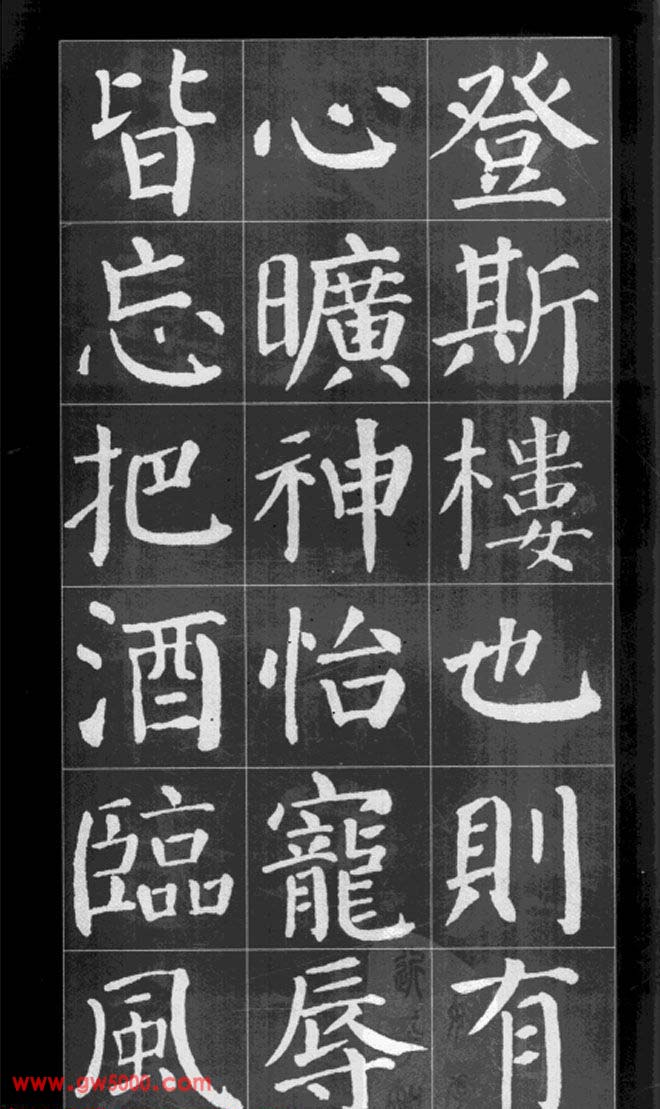 登斯樓也則有
心曠神怡寵辱
皆忘把酒臨風
www.gw5000.com